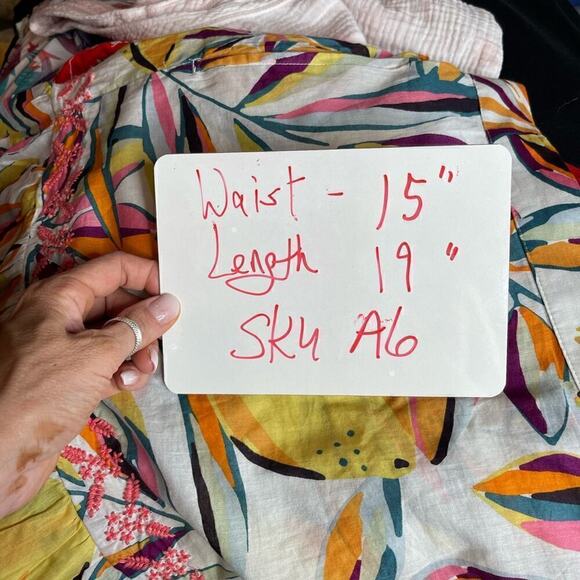 Waist - 15"
Length 19"
SKU A6